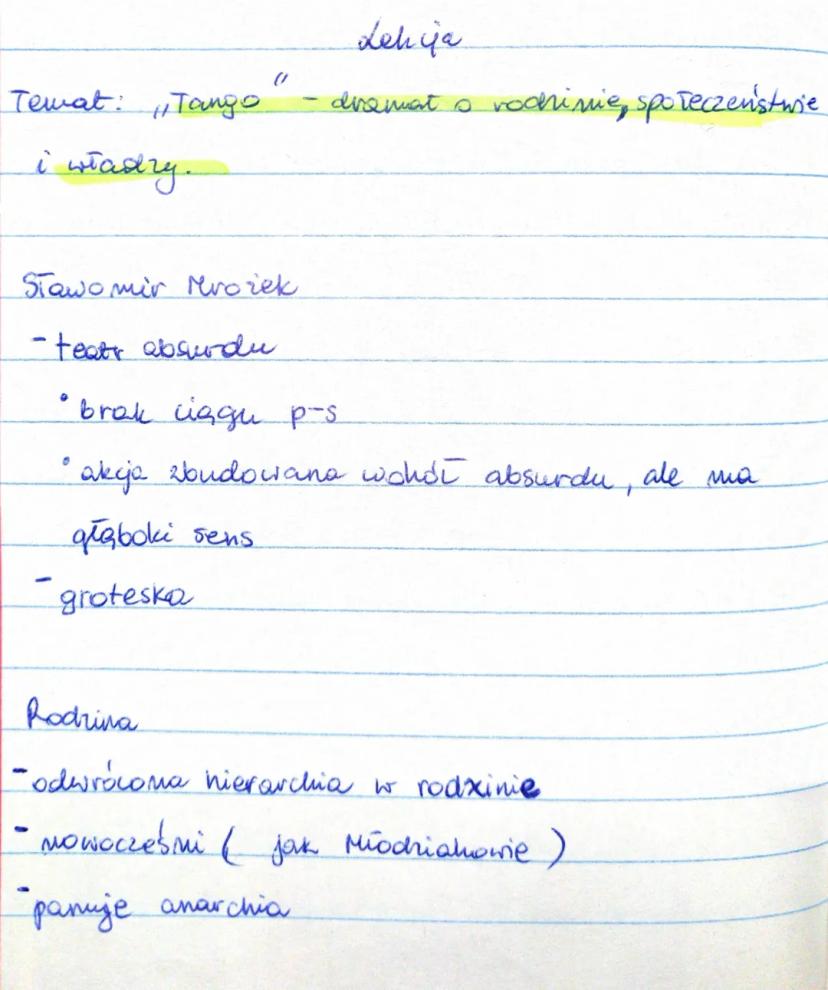 Lekcja
Temat: „Tango" - dramat o rodzinie, społeczeństwie
i władzy.
Sławomir Mrożek
- teatr absurdu
• brak ciągu p-s
• akcja zbudowana wokół absurdu, ale ma
głęboki sens
- groteska
Rodzina
- odwrócona hierarchia w rodzinie
- nowocześni ( jak Młodziakowie )
- panuje anarchia